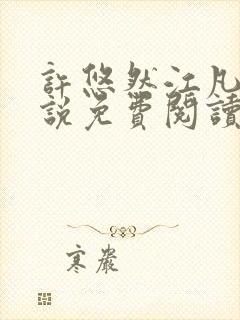 許悠然江凡
說免費閱讀
寒嚴